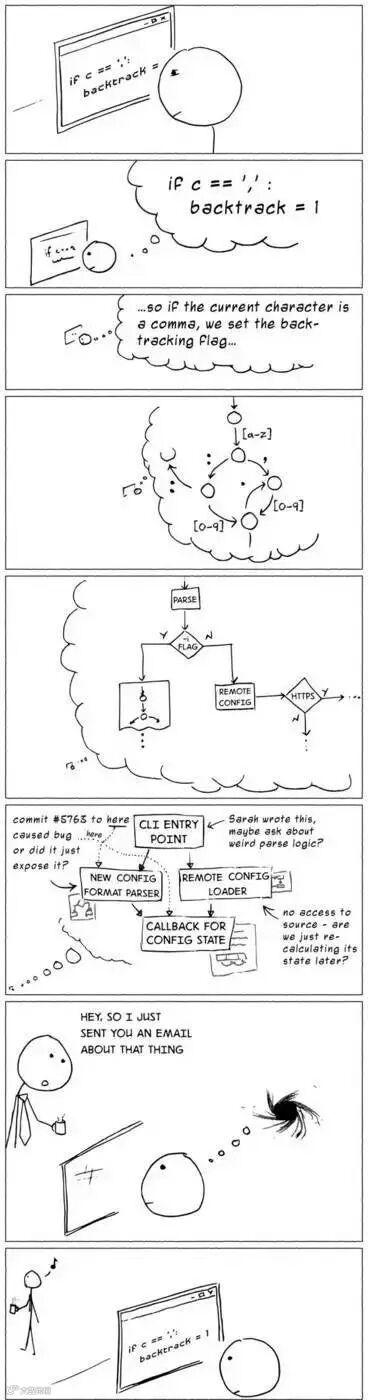 if c == ',':
backtrack =
if c == ',':
backtrack = 1
if c==','
...so if the current character is
a comma, we set the back-
tracking flag...
[a-z]
:
,
:
.
[0-9]
[0-9]
PARSE
Y
-i
FLAG
N
REMOTE
CONFIG
HTTPS
Y
...
N
commit #5763 to here
caused bug ... here
or did it just
expose it?
CLI ENTRY
POINT
Sarah wrote this,
maybe ask about
weird parse logic?
NEW CONFIG
FORMAT PARSER
REMOTE CONFIG
LOADER
CALLBACK FOR
CONFIG STATE
no access to
source - are
we just re-
calculating its
state later?
HEY, SO I JUST
SENT YOU AN EMAIL
ABOUT THAT THING
if c == ',':
backtrack = 1